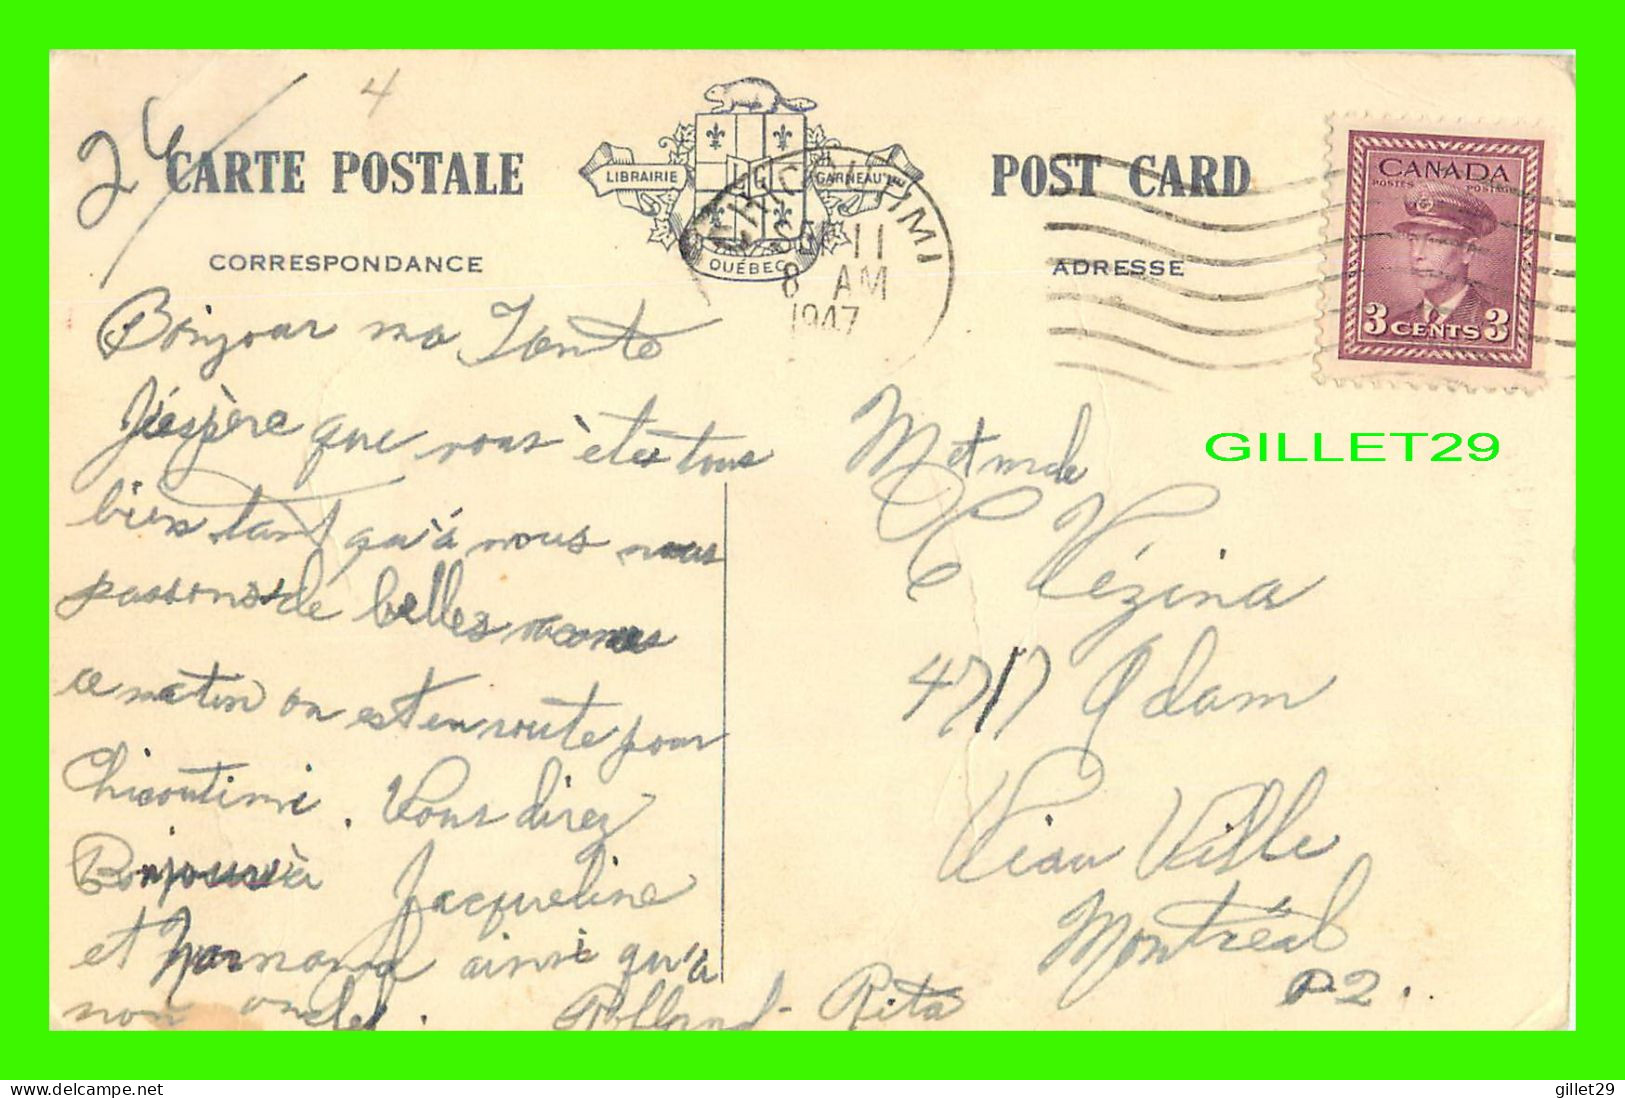 24
4
CARTE POSTALE
LIBRAIRIE
LG
GARNEAU LTÉE
QUÉBEC
POST CARD
CORRESPONDANCE
CHICOUTIMI
11
8 AM
1947
ADRESSE
CANADA
POSTES POSTAGE
3 CENTS 3
GILLET29
Bonjour ma Tante
J'éspère que vous êtes tous
bien tant qu'à nous nous
passons de belles
ce matin on est en route pour
Chicoutimi. Vous direz
Bonjour à Jacqueline
et Normand ainsi qu'à
mon oncle. Rolland - Rita
Madame
C Vézina
4717 Adam
Viau Ville
Montréal
P2.
delcampe.net
gillet29